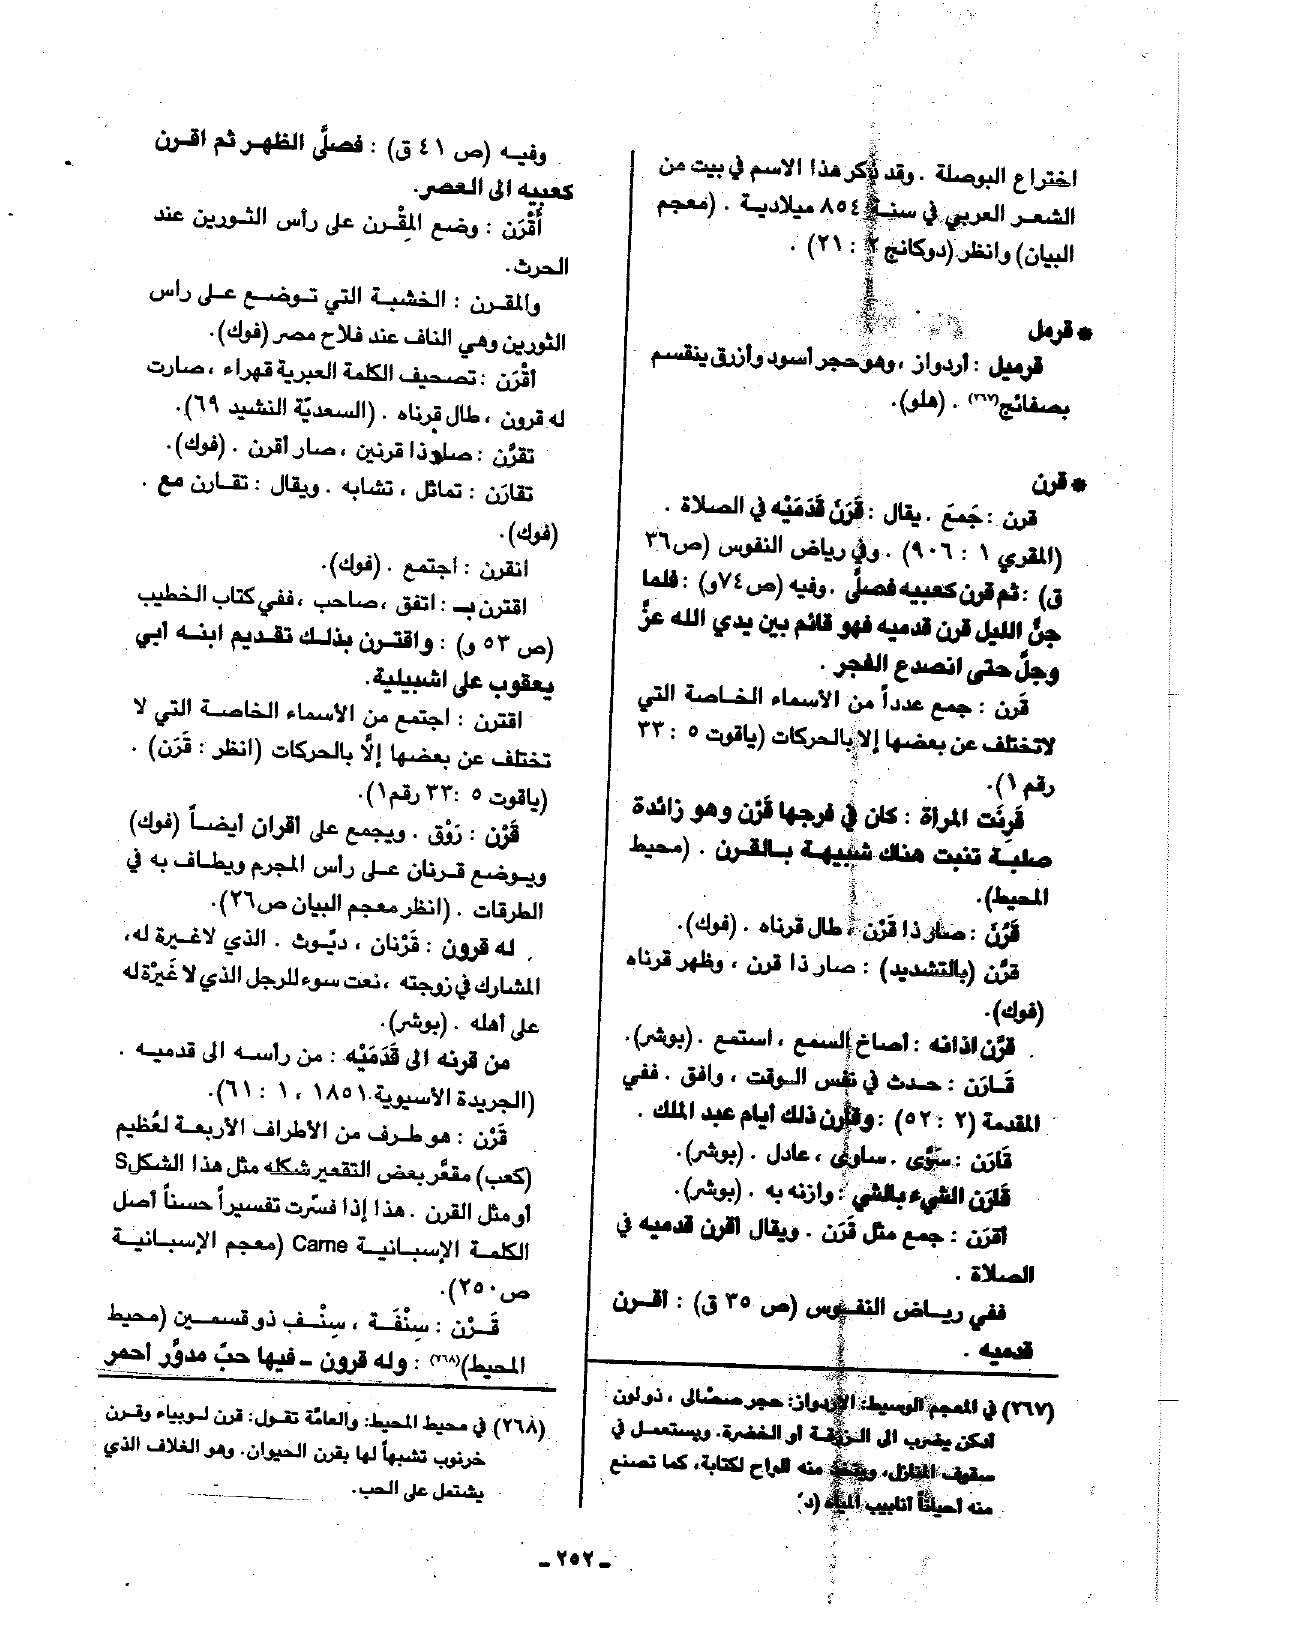 اختراع البوصلة . وقد ذكر هذا الاسم في بيت من
الشعر العربي في سنة ٨٥٤ ميلادية . (معجم
البيان) وانظر (دوكانج ٢ : ٢١) .
* قرمل
قرميل : أردواز ، وهو حجر أسود وأزرق ينقسم
بصفائح(٢٦٧) . (هلو).
* قرن
قرن : جَمعَ . يقال : قَرَنَ قَدَمَيْه في الصلاة .
(المقري ١ : ٩٠٦) . وفي رياض النفوس (ص٣٦
ق) : ثم قرن كعبيه فصلَّى . وفيه (ص٧٤و) : فلما
جنَّ الليل قرن قدميه فهو قائم بين يدي الله عزَّ
وجلَّ حتى انصدع الفجر .
قَرن : جمع عدداً من الأسماء الخاصة التي
لاتختلف عن بعضها إلا بالحركات (ياقوت ٥ : ٣٣
رقم ١).
قَرِنَت المرأة : كان في فرجها قَرْن وهو زائدة
صلبة تنبت هناك شبيهة بالقرن . (محيط
المحيط).
قَرُنَ : صار ذا قَرْن ، طال قرناه . (فوك).
قرَّن (بالتشديد) : صار ذا قرن ، وظهر قرناه
(فوك).
قرَّن اذانه : أصاخ السمع ، استمع . (بوشر).
قَارَن : حدث في نفس الوقت ، وافق . ففي
المقدمة (٢ : ٥٢) : وقارن ذلك أيام عبد الملك .
قَارَن : سَوَّى . ساوى ، عادل . (بوشر).
قَارَن الشيء بالشي : وازنه به . (بوشر).
أقرَن : جمع مثل قَرَن . ويقال أقرن قدميه في
الصلاة .
ففي رياض النفوس (ص ٣٥ ق) : أقرن
قدميه .
(٢٦٧) في المعجم الوسيط: الأردواز: حجر صلصالى ، ذو لون
أدكن يضرب الى الزرقة أو الخضرة. ويستعمل في
سقوف المنازل، ويتخذ منه ألواح لكتابة، كما تصنع
منه أحياناً أنابيب المياه (د)
وفيه (ص ٤١ ق) : فصلَّى الظهر ثم اقرن
كعبيه الى العصر.
أَقْرَن : وضع المِقْرن على رأس الثورين عند
الحرث.
والمقرن : الخشبة التي توضع على رأس
الثورين وهي الناف عند فلاح مصر (فوك).
أقْرَن : تصحيف الكلمة العبرية قهراء ، صارت
له قرون ، طال قرناه . (السعديّة النشيد ٦٩).
تقرَّن : صار ذا قرنين ، صار أقرن . (فوك).
تقارَن : تماثل ، تشابه . ويقال : تقارن مع .
(فوك).
انقرن : اجتمع . (فوك).
اقترن بـ : اتفق ، صاحب ، ففي كتاب الخطيب
(ص ٥٣ و) : واقترن بذلك تقديم ابنه أبي
يعقوب على اشبيلية.
اقترن : اجتمع من الأسماء الخاصة التي لا
تختلف عن بعضها إلَّا بالحركات (انظر : قَرَن) .
(ياقوت ٥ : ٣٣ رقم ١).
قَرْن : رَوْق . ويجمع على أقران أيضاً (فوك)
ويوضع قرنان على رأس المجرم ويطاف به في
الطرقات . (انظر معجم البيان ص٢٦).
له قرون : قَرْنان ، ديّوث . الذي لاغيرة له،
المشارك في زوجته ، نعت سوء للرجل الذي لا غَيرْة له
على أهله . (بوشر).
من قرنه الى قَدَمَيْه : من رأسه الى قدميه .
(الجريدة الأسيوية ١٨٥١ ، ١ : ٦١).
قَرْن : هو طرف من الأطراف الأربعة لعُظيم
(كعب) مقعَّر بعض التقعير شكله مثل هذا الشكل S
أو مثل القرن . هذا إذا فسّرت تفسيراً حسناً أصل
الكلمة الإسبانية Carne (معجم الإسبانية
ص ٢٥٠).
قَرْن : سِنْفَة ، سِنْف ذو قسمين (محيط
المحيط)(٢٦٨) : وله قرون ـ فيها حبّ مدوَّر أحمر
(٢٦٨) في محيط المحيط: والعامَّة تقول: قرن لوبياء وقرن
خرنوب تشبهاً لها بقرن الحيوان. وهو الغلاف الذي
يشتمل على الحب.
ـ ٢٥٢ ـ